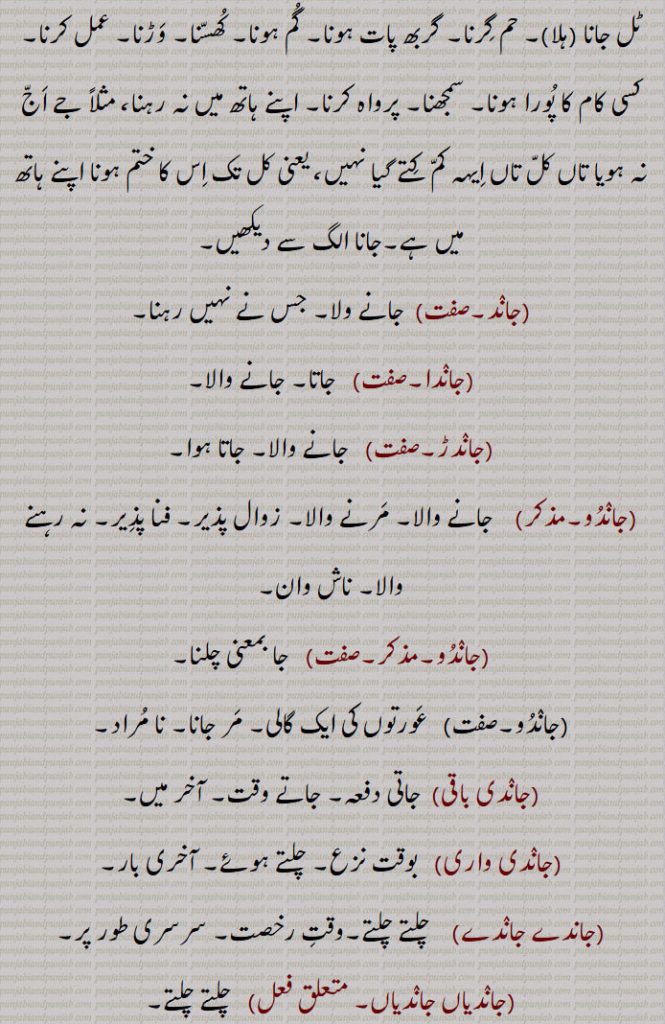 ٹل جانا (ہلا)۔ حم گِرنا۔ گربھ پات ہونا۔ گُم ہونا۔ کُھسّنا۔ وَڑنا۔ عمل کرنا۔
کسی کام کا پُورا ہونا۔ سمجھنا۔ پرواہ کرنا۔ اپنے ہاتھ میں نہ رہنا، مثلاً جے اَجّ
نہ ہویا تاں کلّ تاں اِیہہ کمّ کِتے گیا نہیں، یعنی کل تک اِس کا ختم ہونا اپنے ہاتھ
میں ہے۔ جانا الگ سے دیکھیں۔
(جانْد۔صفت) جانے ولا۔ جس نے نہیں رہنا۔
(جانْدا۔صفت) جاتا۔ جانے والا۔
(جانْدڑ۔صفت) جانے والا۔ جاتا ہوا۔
(جانْدُو۔مذکر) جانے والا۔ مَرنے والا۔ زوال پذیر۔ فنا پذِیر۔ نہ رہنے
والا۔ ناش وان۔
(جانْدُو۔مذکر۔صفت) جا بمعنی چلنا۔
(جانْدُو۔صفت) عَورتوں کی ایک گالی۔ مَر جانا۔ نا مُراد۔
(جانْدی باقی) جاتی دفعہ۔ جاتے وقت۔ آخر میں۔
(جانْدی واری) بوقت نزع۔ چلتے ہوئے۔ آخری بار۔
(جاندے جانْدے) چلتے چلتے۔وقتِ رخصت۔ سرسری طور پر۔
(جانْدیاں جانْدیاں۔ متعلق فعل) چلتے چلتے۔